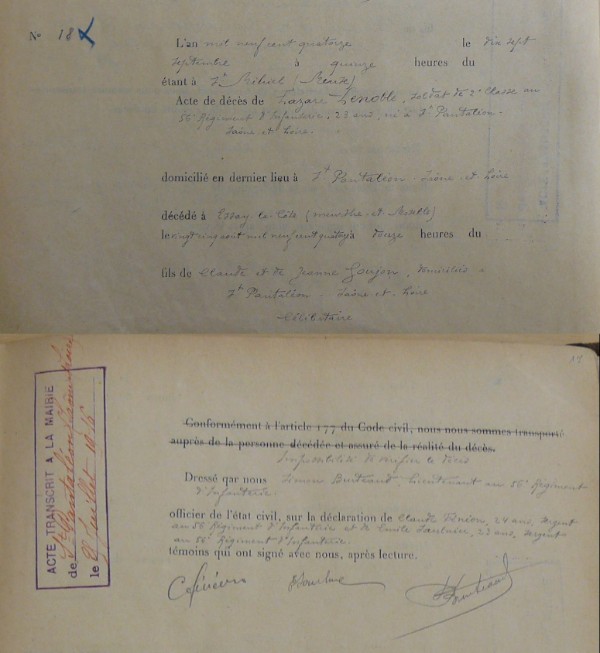 N° 18
L'an mil neuf cent quatorze le dix sept
septembre à quinze heures du
étant à St Mihiel (Meuse)
Acte de décès de Lazare Lenoble, soldat de 2e Classe au
56e Régiment d'Infanterie, 23 ans, né à St Pantaléon
Saône et Loire.
domicilié en dernier lieu à St Pantaléon Saône et Loire
décédé à Essey la Côte (meurthe et Moselle)
le vingt cinq août mil neuf cent quatorze à douze heures du
fils de Claude et de Jeanne Goujon, domiciliés à
St Pantaléon Saône et Loire
Célibataire
Conformément à l'article 177 du Code civil, nous nous sommes transporté
auprès de la personne décédée et assuré de la réalité du décès.
Impossibilité de vérifier le décès
Dressé qar nous Simon Lieutenant au 56e Régiment
d'Infanterie
officier de l'état civil, sur la déclaration de Claude 24 ans, sergent
au 56e Régiment d'Infanterie et de Emile 23 ans, sergent
au 56e Régiment d'Infanterie.
témoins qui ont signé avec nous, après lecture.
ACTE TRANSCRIT A LA MAIRIE
de St Pantaléon Saône et Loire
le juillet 1915